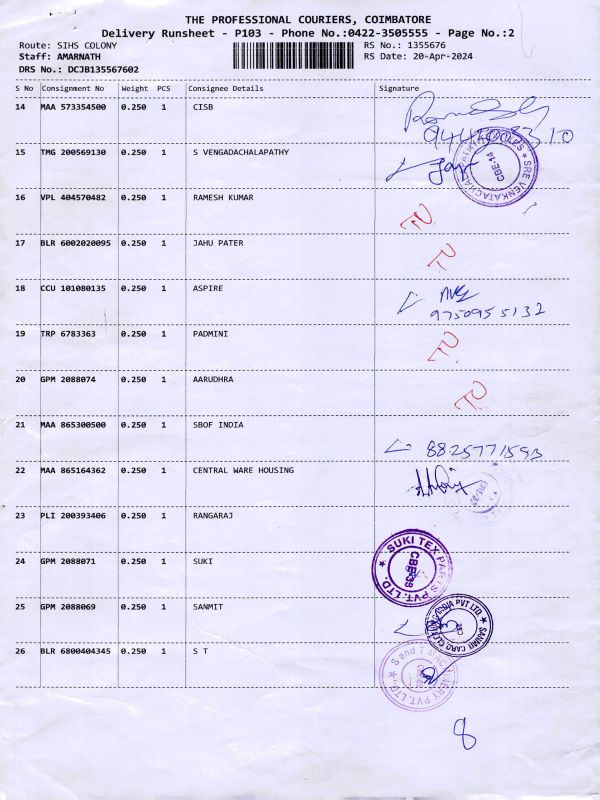 THE PROFESSIONAL COURIERS, COIMBATORE
Delivery Runsheet - P103 - Phone No.:0422-3505555 - Page No.:2
Route: SIHS COLONY RS No.: 1355676
Staff: AMARNATH RS Date: 20-Apr-2024
DRS No.: DCJB135567602
S No Consignment No Weight PCS Consignee Details Signature
14 MAA 573354500 0.250 1 CISB
15 TMG 200569130 0.250 1 S VENGADACHALAPATHY
CBE-14
16 VPL 404570482 0.250 1 RAMESH KUMAR
17 BLR 6002020095 0.250 1 JAHU PATER
18 CCU 101080135 0.250 1 ASPIRE
9750955132
19 TRP 6783363 0.250 1 PADMINI
20 GPM 2088074 0.250 1 AARUDHRA
21 MAA 865300500 0.250 1 SBOF INDIA
8825771593
22 MAA 865164362 0.250 1 CENTRAL WARE HOUSING
23 PLI 200393406 0.250 1 RANGARAJ
24 GPM 2088071 0.250 1 SUKI
SUKI TEX PARTS PVT. LTD.
25 GPM 2088069 0.250 1 SANMIT
26 BLR 6800404345 0.250 1 S T
8